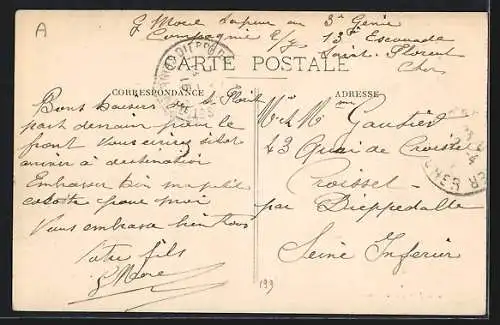 A
G Morel Sapeur au 3e Génie
Compagnie 2/7 13e Escouade
Saint-Florent
Cher
CARTE POSTALE
CORRESPONDANCE
ADRESSE
Bons baisers de St Florent
part demain pour le
front Vous écrirez sitôt
arriver à destination
Embrasser bien ma petite
pour moi
Vous embrasse bien tous
Votre fils
G Morel
M et Me Gautier
43 Quai de Croisset
Croisset
par Dieppedalle
Seine Inferieur
193